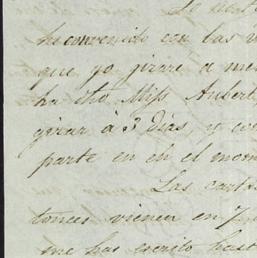 he convenido con las
que yo girare a me
ha dho Miss Aubert
girar à 3 Dias, y co
parte en eh el mom
Las carta
tonces vienen en
me has escrito hast